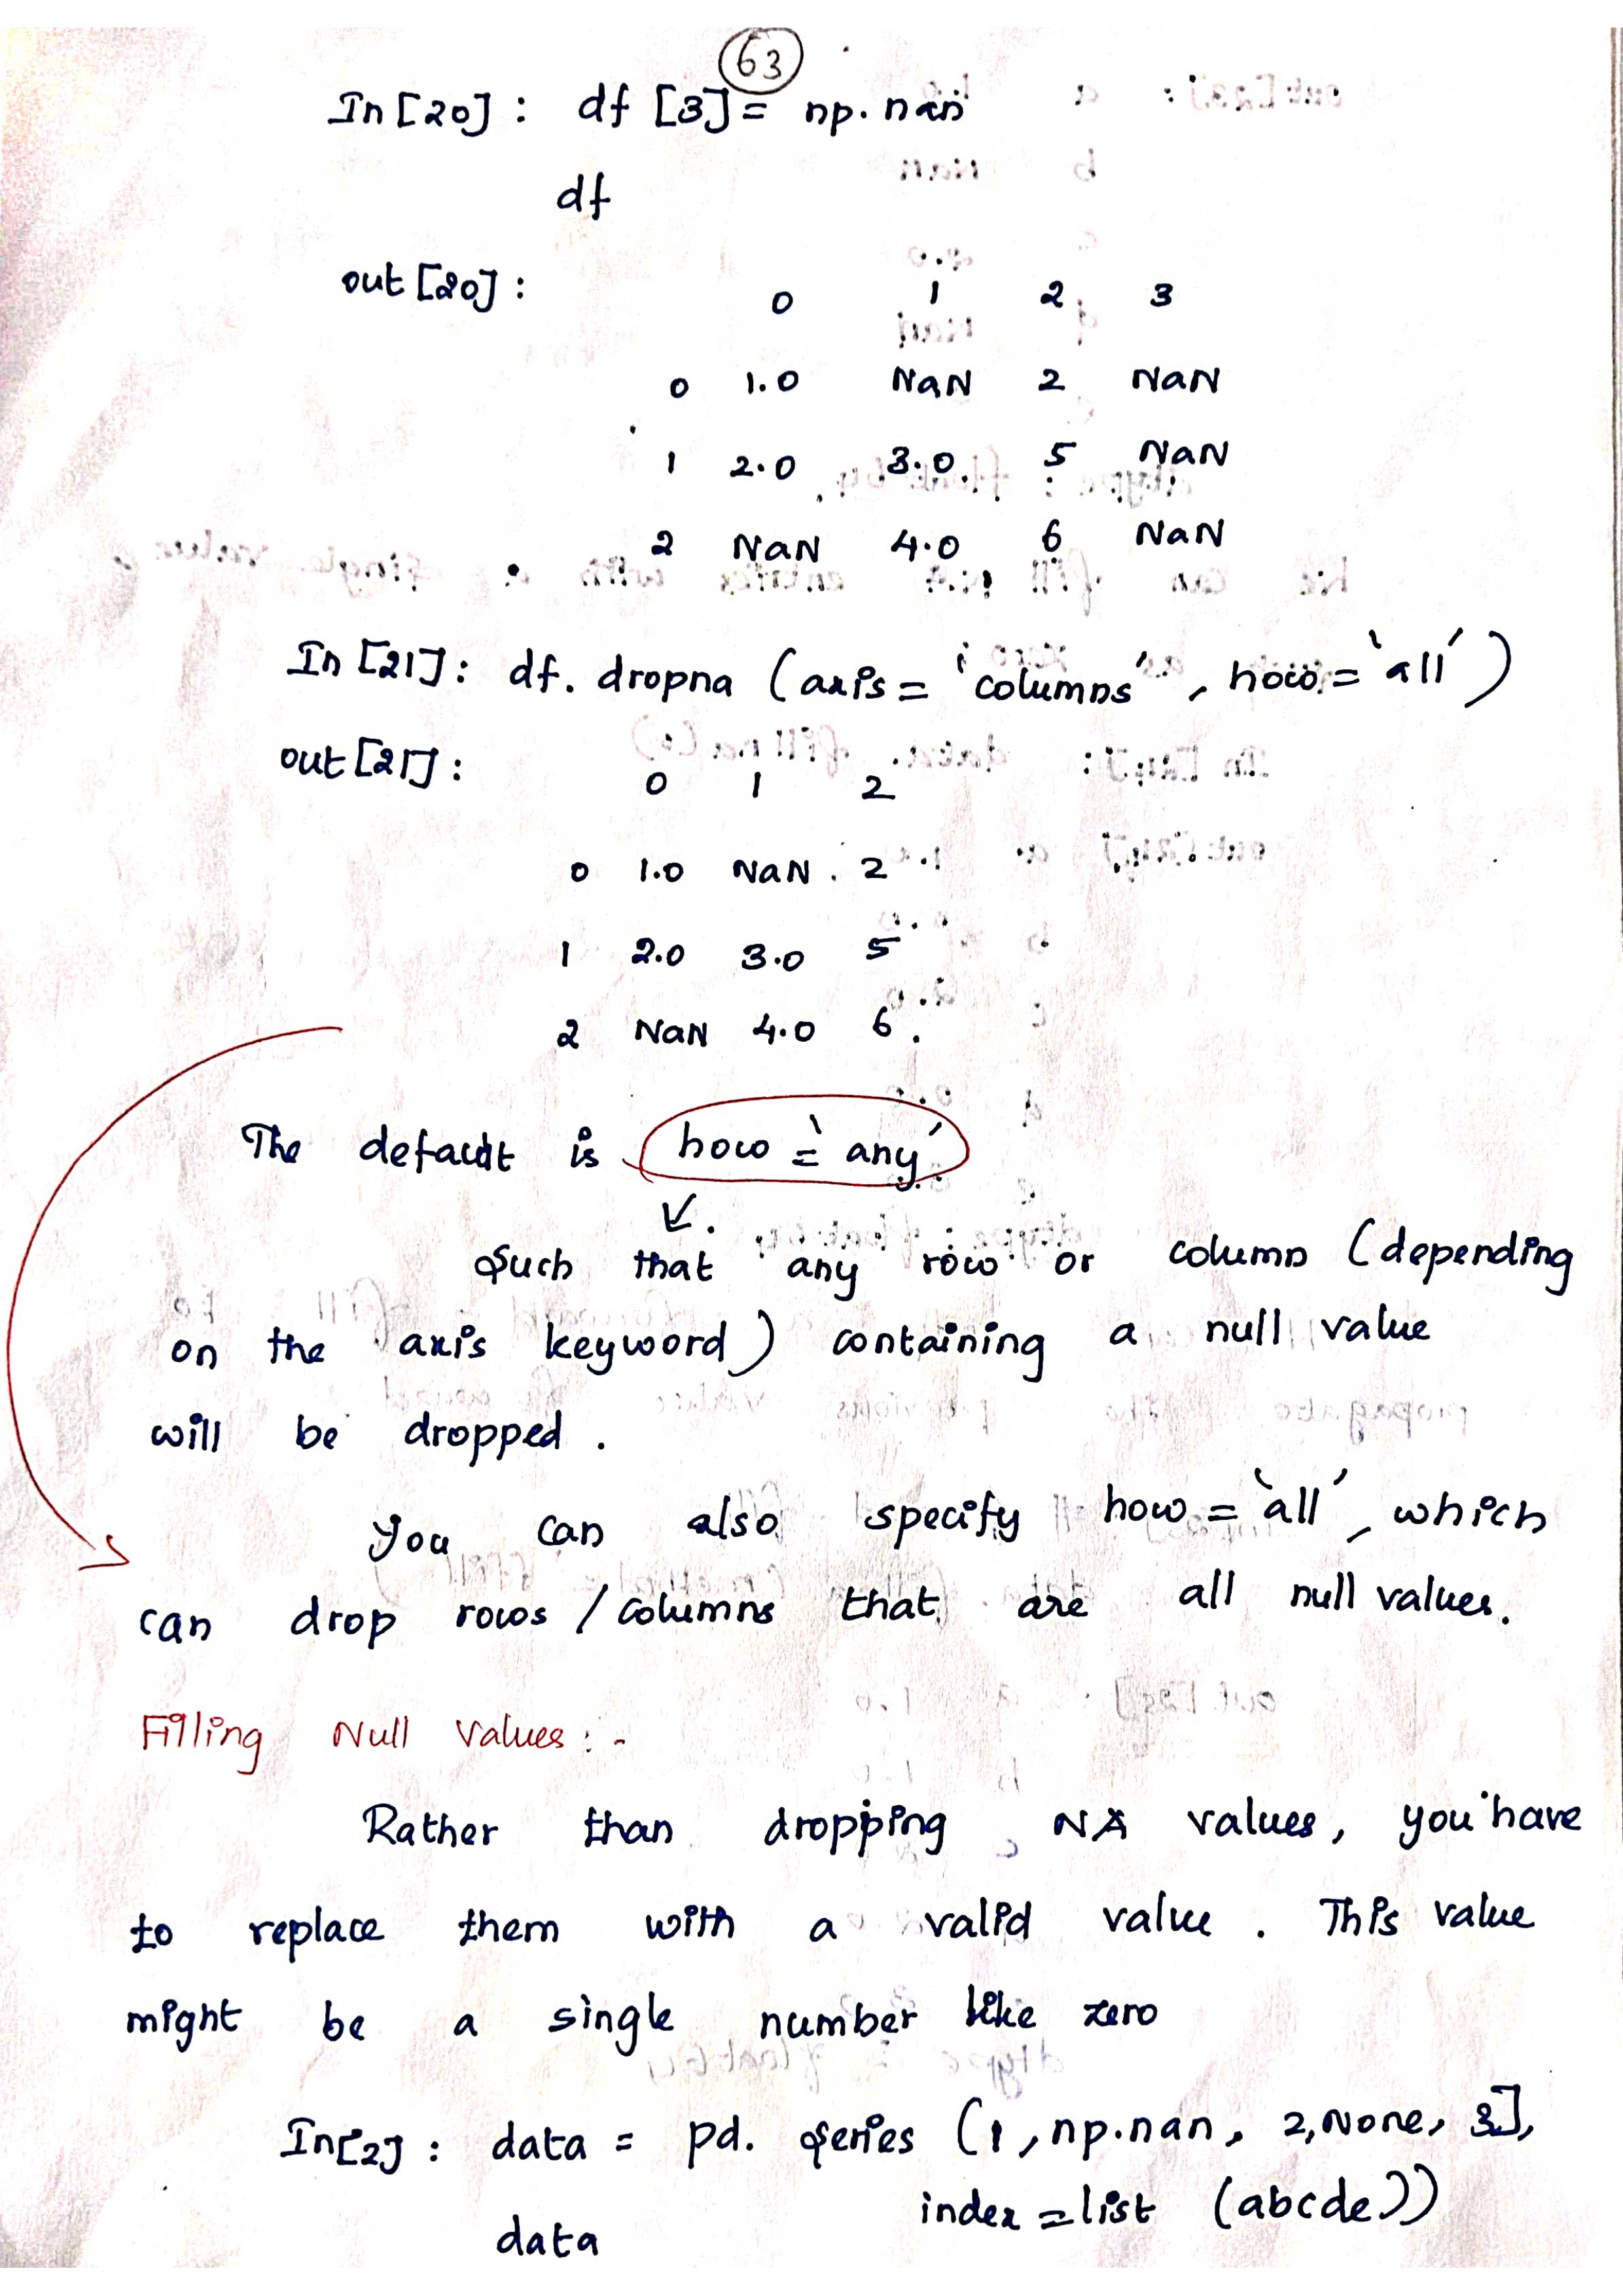 63
In [20] : df [3] = np. nan
df
out [20] :
0 1 2 3
0 1.0 NaN 2 NaN
1 2.0 3.0 5 NaN
2 NaN 4.0 6 NaN
In [21] : df. dropna (axis = 'columns' , how = 'all')
out [21] :
0 1 2
0 1.0 NaN 2
1 2.0 3.0 5
2 NaN 4.0 6
The default is how = 'any'
Such that any row or column (depending
on the axis keyword) containing a null value
will be dropped .
You can also specify how = 'all' , which
can drop rows / columns that are all null values.
Filling Null Values : -
Rather than dropping NA values, you have
to replace them with a valid value . This value
might be a single number like zero
In[2] : data = pd. Series (1, np.nan, 2, None, 3],
index = list (abcde))
data